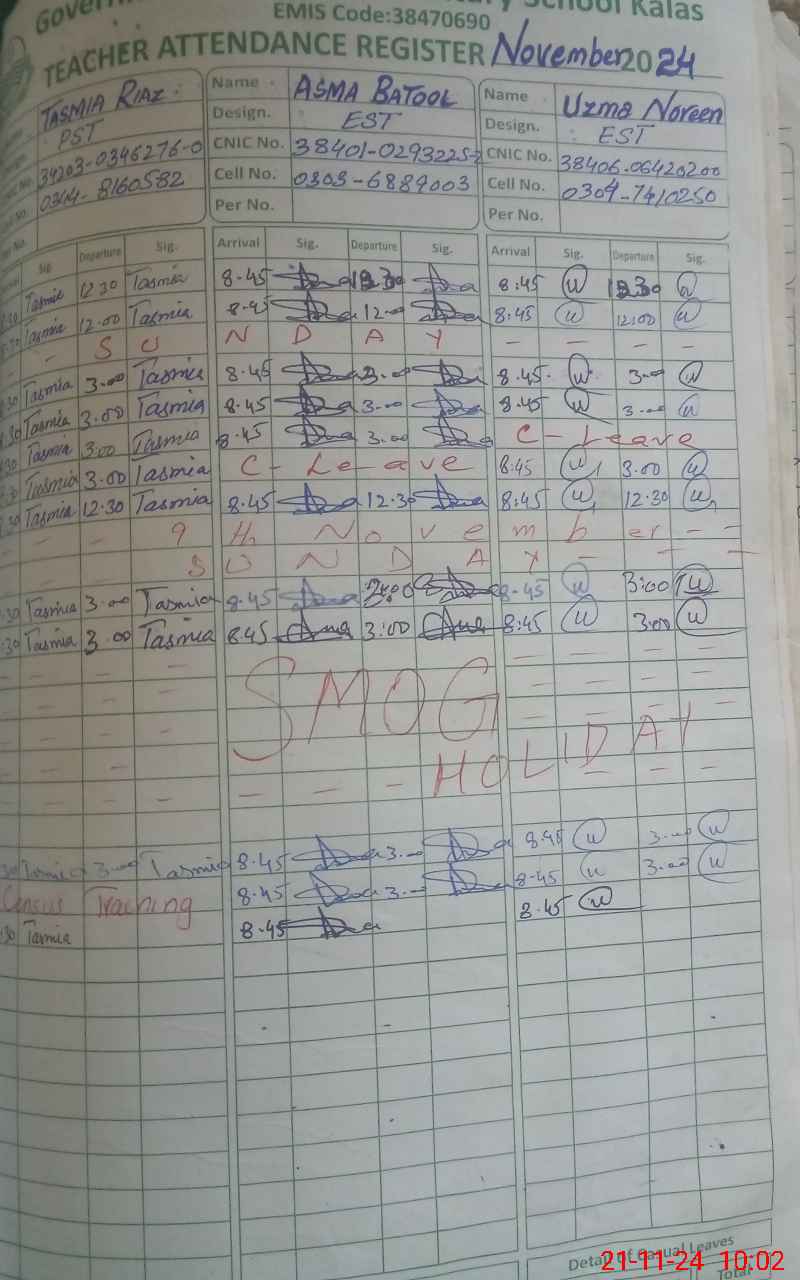 School Kalas
EMIS Code:38470690
TEACHER ATTENDANCE REGISTER November 2024
TASMIA RIAZ Name ASMA BATOOL Name Uzma Noreen
PST Design. EST Design. EST
34203-0346276-0 CNIC No. 38401-0293225-2 CNIC No. 38406-06420200
0314-8160582 Cell No. 0303-6889003 Cell No. 0304-7410250
Per No. Per No.
Sig. Departure Sig. Arrival Sig. Departure Sig. Arrival Sig. Departure Sig.
Tasmia 12 30 Tasmia 8.45 12 30 8:45 12 30
Tasmia 12.00 Tasmia 8.45 12.00 8:45 12:00
- S U N D A Y - - - -
30 Tasmia 3.00 Tasmia 8.45 3.00 8.45 3.00
30 Tasmia 3.00 Tasmia 8.45 3.00 8.45 3.00
30 Tasmia 3.00 Tasmia 8.45 3.00 C - Leave
Tasmia 3.00 Tasmia C - Leave 8.45 3.00
30 Tasmia 12.30 Tasmia 8.45 12.30 8:45 12.30
- - - 9 th November - -
- - - S U N D A Y - - -
30 Tasmia 3.00 Tasmia 8.45 8-45 3:00
30 Tasmia 3.00 Tasmia 8.45 3:00 8:45 3.00
SMOG
HOLIDAY
Tasmia 3.00 Tasmia 8.45 3.00 8.45 3.00
Census Training 8.45 3.00 8.45 3.00
30 Tasmia 8.45 8.45
Detail of Casual Leaves
Total
21-11-24 10:02